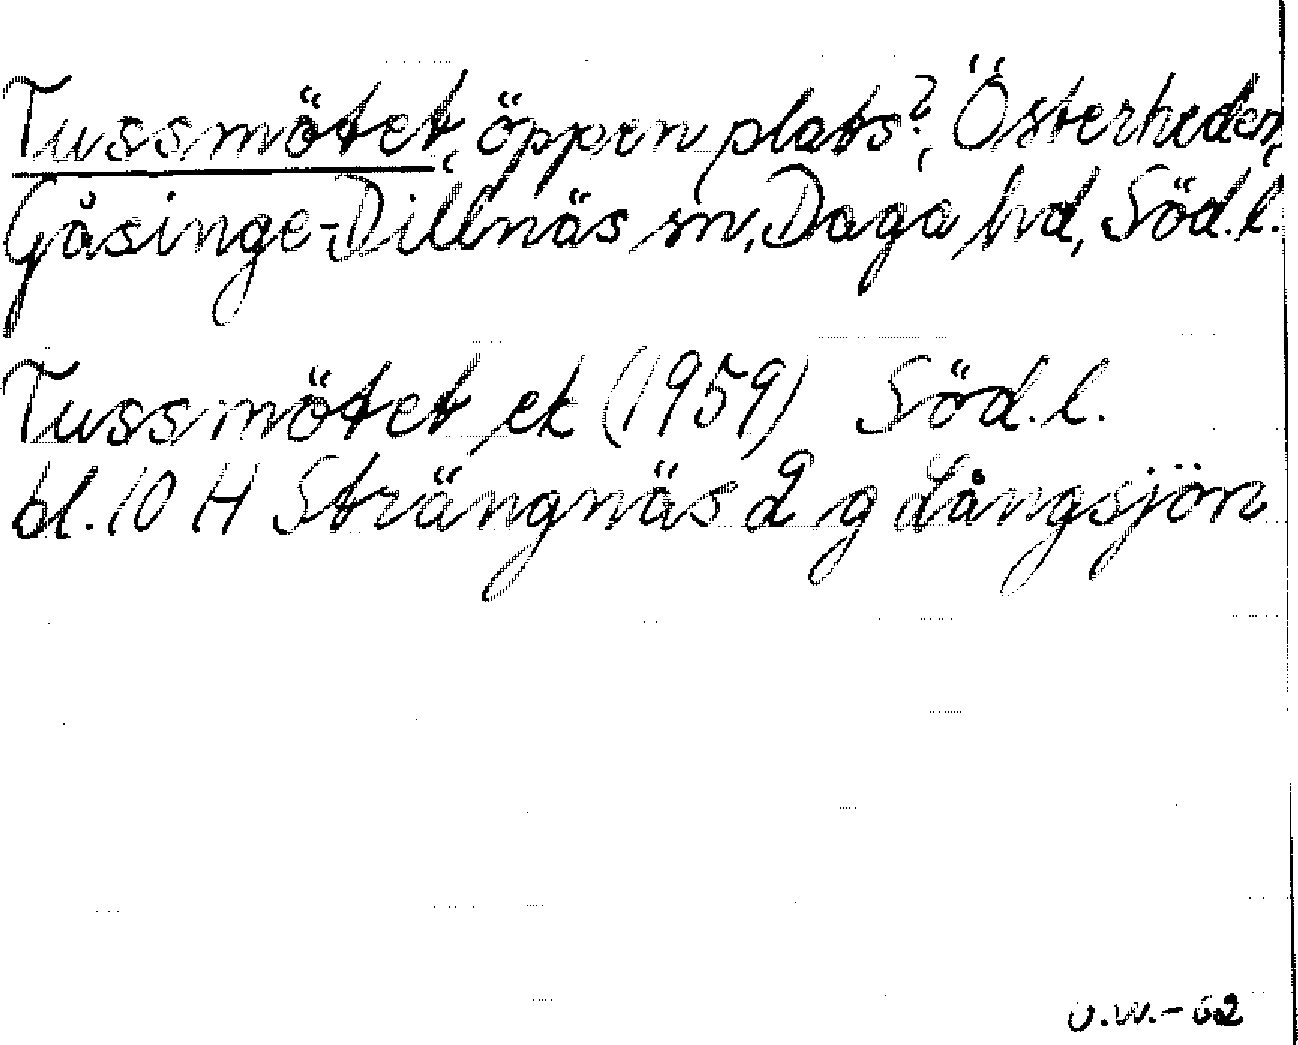 Tussmötet, öppen plats?, Österheden,
Gåsinge-Dillnäs sn, Daga hd, Söd.l.
Tussmötet ek (1959) Söd.l.
bl. 10 H Strängnäs 2 g Långsjön
U.W.-62